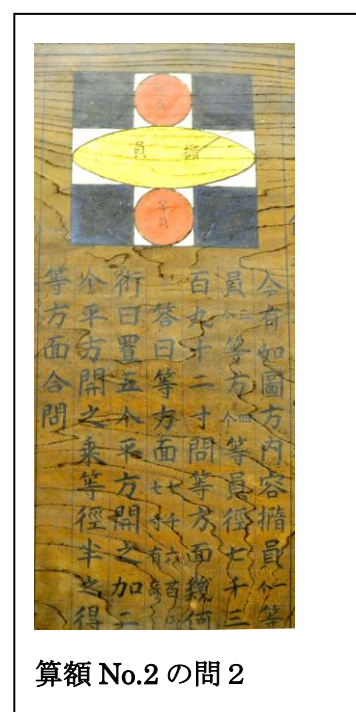 等員
撱員
等員
今有如圖方内容撱員个一等
員个等方个四等員徑七千三
百九十二寸問等方面幾何
答曰等方面七千六百〇七寸有奇
術曰置五个平方開之加二
个平方開之乗等徑半之得
等方面合問
算額 No.2 の問 2